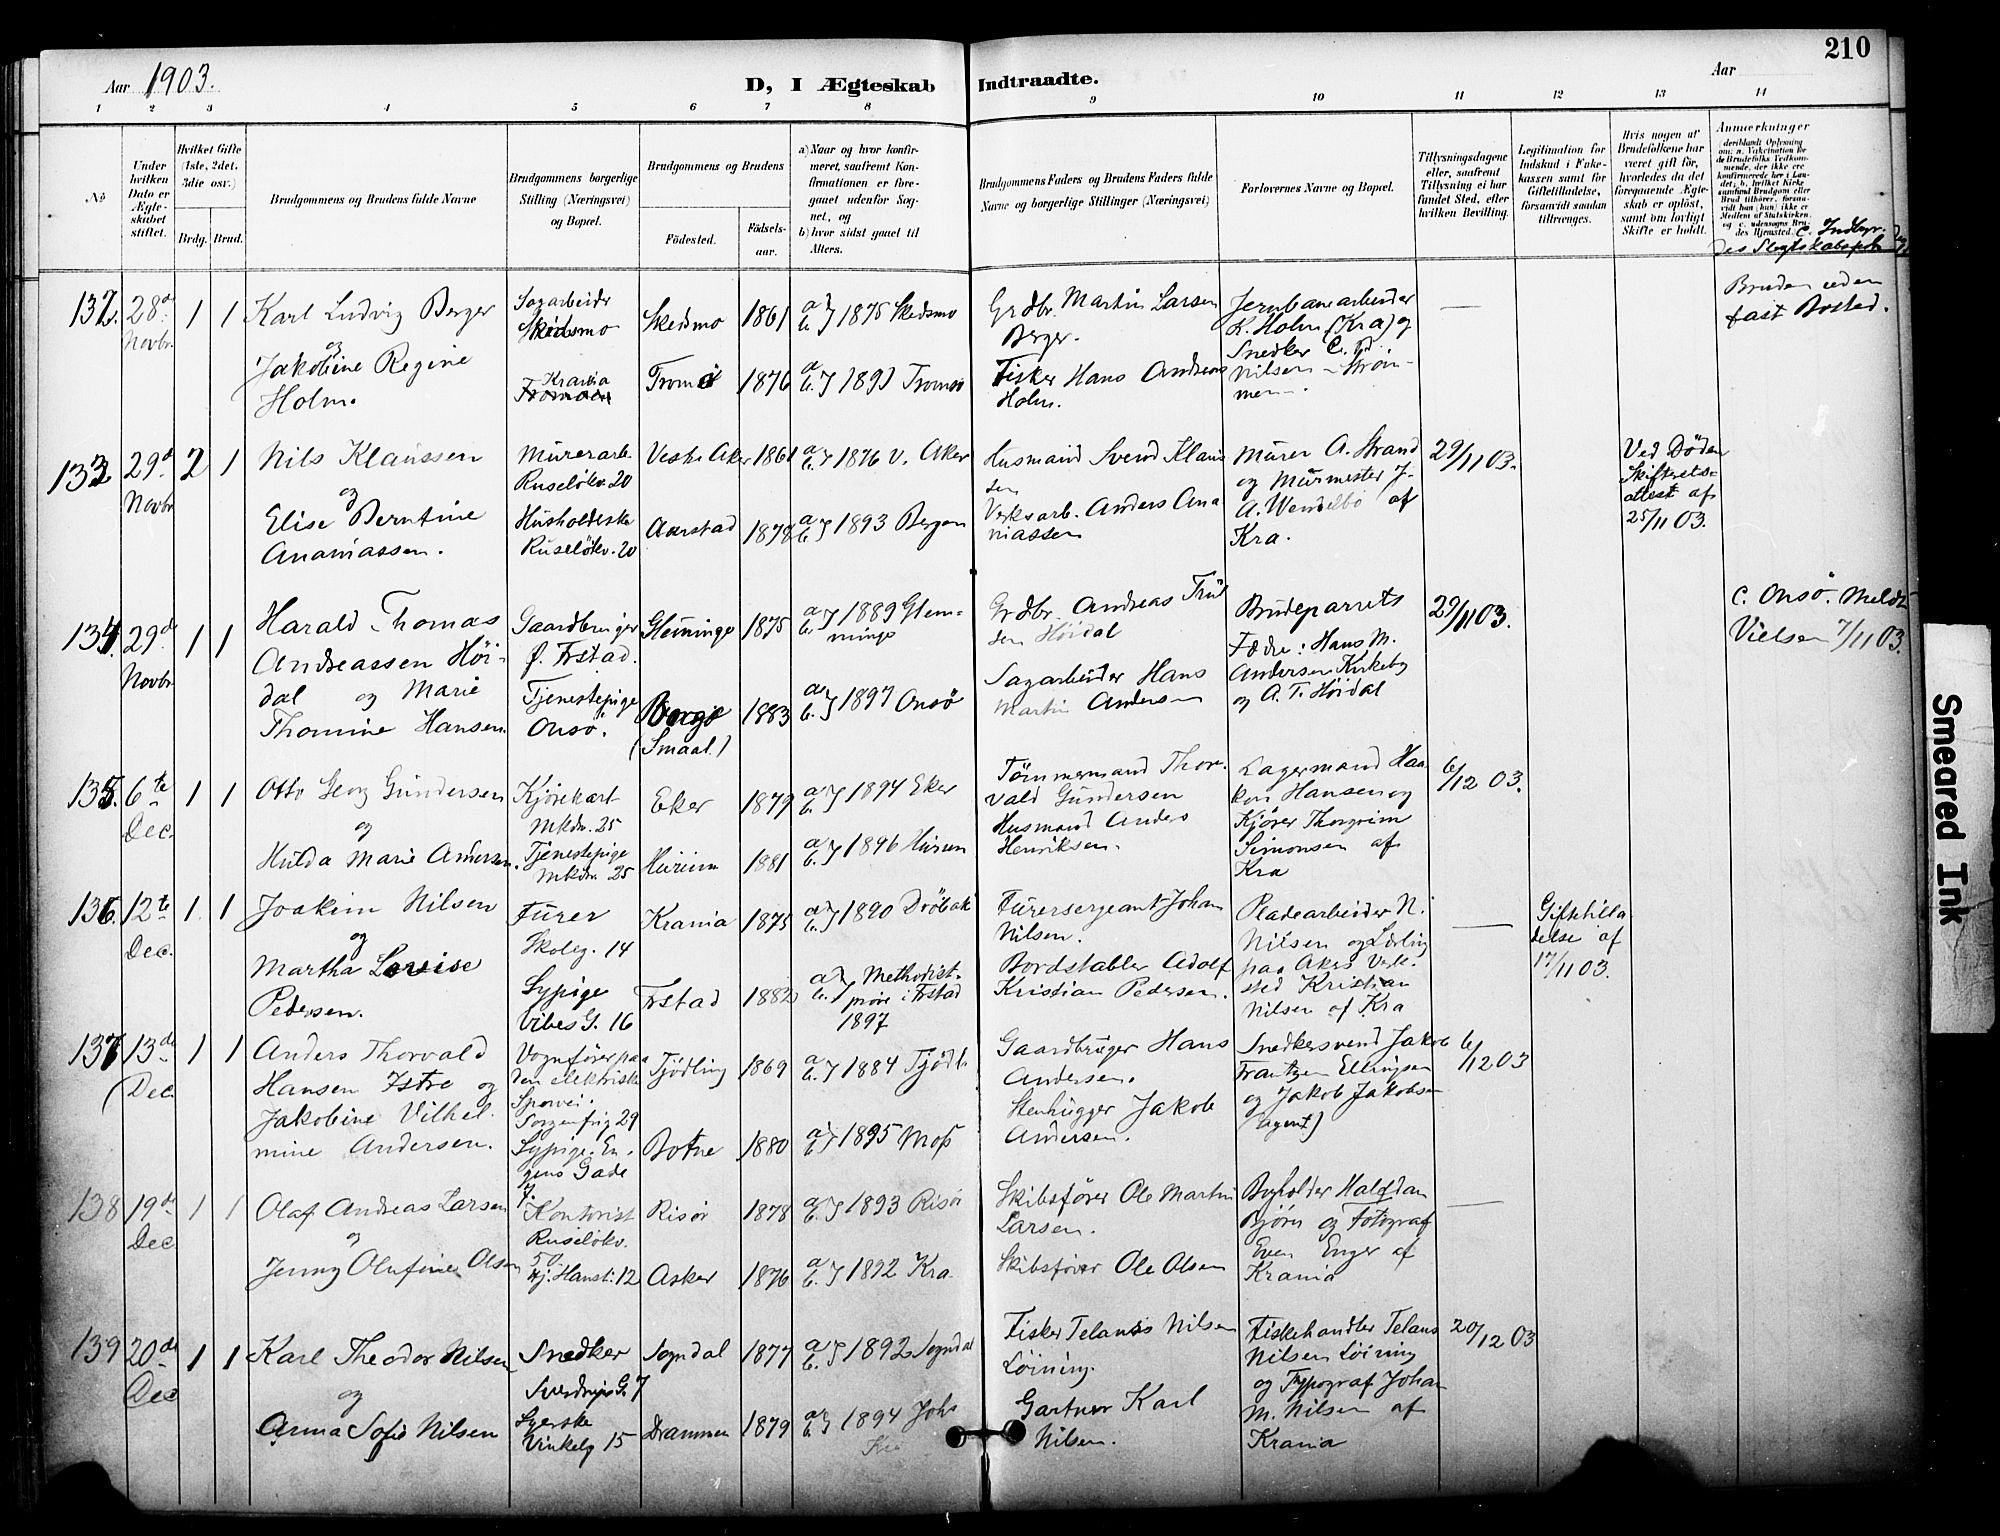 210
Aar 1903.
D, I Ægteskab Indtraadte.
Aar
1 2 3 4 5 6 7 8 9 10 11 12 13 14
No
Under hvilken Dato er Ægteskabet stiftet.
Hvilket Gifte (1ste, 2det, 3die osv.)
Brdg. Brud.
Brudgommens og Brudens fulde Navne
Brudgommens borgerlige Stilling (Næringsvei) og Bopæl.
Brudgommens og Brudens
Fødested.
Fødselsaar.
a) Naar og hvor konfirmeret, saafremt Konfirmationen er foregaaet udenfor Sognet, og
b) hvor sidst gaaet til Alters.
Brudgommens Faders og Brudens Faders fulde Navne og borgerlige Stillinger (Næringsvei)
Forlovernes Navne og Bopæl.
Tillysningsdagene eller, saafremt Tillysning ei har fundet Sted, efter hvilken Bevilling.
Legitimation for Indskud i Enkekassen samt for Giftetilladelse, forsaavidt saadan tiltrænges.
Hvis nogen af Brudefolkene har været gift før, hvorledes da det foregaaende Ægteskab er opløst, samt om lovligt Skifte er holdt.
Anmærkninger (deriblandt Oplysning om: a. Vakcination for de Brudefolks Vedkommende, der ikke ere konfirmerede her i Landet; b. hvilket Kirkesamfund Brudgom eller Brud tilhører, forsaavidt han (hun) ikke er Medlem af Statskirken, og c. udensogns Brudes Hjemsted.
132. 28de Novbr. 1 1
Karl Ludvig Berger
og
Jakobine Regine
Holm.
Sagarbeider
Skedsmo
Krania
Skedsmo 1861 a b } 1875 Skedsmo
Tromsö 1876 a b } 1891 Tromsö
Grdbr. Martin Larsen
Berger.
Fisker Hans Andreas
Holm.
Jernbanearbeider
K. Holm (Kra) og
Snedker C. Fd
Nilsen - Strömmen -
—
Bruden uden
fast Bosted.
133. 29de Novbr 2 1
Nils Klaussen
og
Elise Berntine
Ananiassen.
Murerarb.
Ruselökv. 20
Husholderske
Ruselökv. 20
Vestre Aker 1861 a b } 1876 V. Aker
Aarstad 1878 a b } 1893 Bergen
Husmand Svend Klaussen
Verksarb. Anders Ananiassen
Murer A. Strand
og Murmester J.
A. Wendelbo af
Kra.
29/11 03.
Ved Döden
Skifterets
attest af
25/11 03.
134. 29de Novbr 1 1
Harald Thomas
Andreassen Höidal og Marie
Thomine Hansen.
Gaardbruger
f. Frstad.
Tjenestepige
Onsö.
Glemminge 1875 a b } 1889 Glemminge
Borge
(Smaal.) 1883 a b } 1897 Onsö
Grdbr. Andreas Trulsen Höidal
Sagarbeider Hans
Martin Andersen
Brudeparrets
Fædre: Hans M.
Andersen Kirkeby
og A. T. Höidal
29/11 03.
C. Onsö. Meldt
Vielsen 7/11 03.
135. 6te Dec. 1 1
Otto Georg Gundersen
og
Hulda Marie Andersen.
Kjörekarl
Mkdv. 25
Tjenestepige
Mkdv. 25
Eker 1879 a b } 1894 Eker
Hurum 1881 a b } 1896 Hurum
Tömmermand Thorvald Gundersen
Husmand Anders
Henriksen.
Lagermand Haakon Hansen og
Kjörer Thorgrim
Simonsen af
Kra
6/12 03.
136. 12te Dec. 1 1
Joakim Nilsen
og
Martha Lovise
Pedersen.
Furer
Skoleg. 14
Sypige
Vibes G. 16
Krania 1875 a b } 1890 Dröbak
Frstad 1882 a b } Methodistpröve i Frstad
1897
Furersergeant Johan
Nilsen.
Bordstabler Adolf
Kristian Pedersen.
Pladearbeider N.
Nilsen og Lærling
paa Akers Verksted Kristian
Nilsen af Kra
—
Giftetilladelse af
17/11 03.
137 13de Dec. 1 1
Anders Thorvald
Hansen Istre og
Jakobine Vilhelmine Andersen.
Vognförer paa
den elektriske
Sporvei.
Sorgenfrig 29
Sypige. Engens Gade
7.
Tjödling 1869 a b } 1884 Tjödl.
Botne 1880 a b } 1895 Moss
Gaardbruger Hans
Andersen.
Stenhugger Jakob
Andersen.
Snedkersvend Jakob
Frantzen Ellingsen
og Jakob Jakobsen
(Agent)
6/12 03
138 19de Dec 1 1
Olaf Andreas Larsen
og
Jenny Olufine Olsen
Kontorist
Ruselökv.
50.
Hj. Hanst. 12
Risör 1878 a b } 1893 Risör
Asker 1876 a b } 1892 Kra.
Skibsförer Ole Martin
Larsen.
Skibsförer Ole Olsen
Bogholder Halfdan
Björn og Fotograf
Even Enger af
Krania
—
139 20de Dec 1 1
Karl Theodor Nilsen
og
Anna Sofie Nilsen
Snedker
Sverdrups G. 7
Syerske
Vinkelg 15
Sogndal 1877 a b } 1892 Sogndal
Drammen 1879 a b } 1894 Johs
Kra
Fisker Telanus Nilsen
Löining.
Gartner Karl
Nilsen.
Fiskehandler Telanus
Nilsen Löining
og Typograf Johan
M. Nilsen af
Krania
20/12 03
Smeared Ink